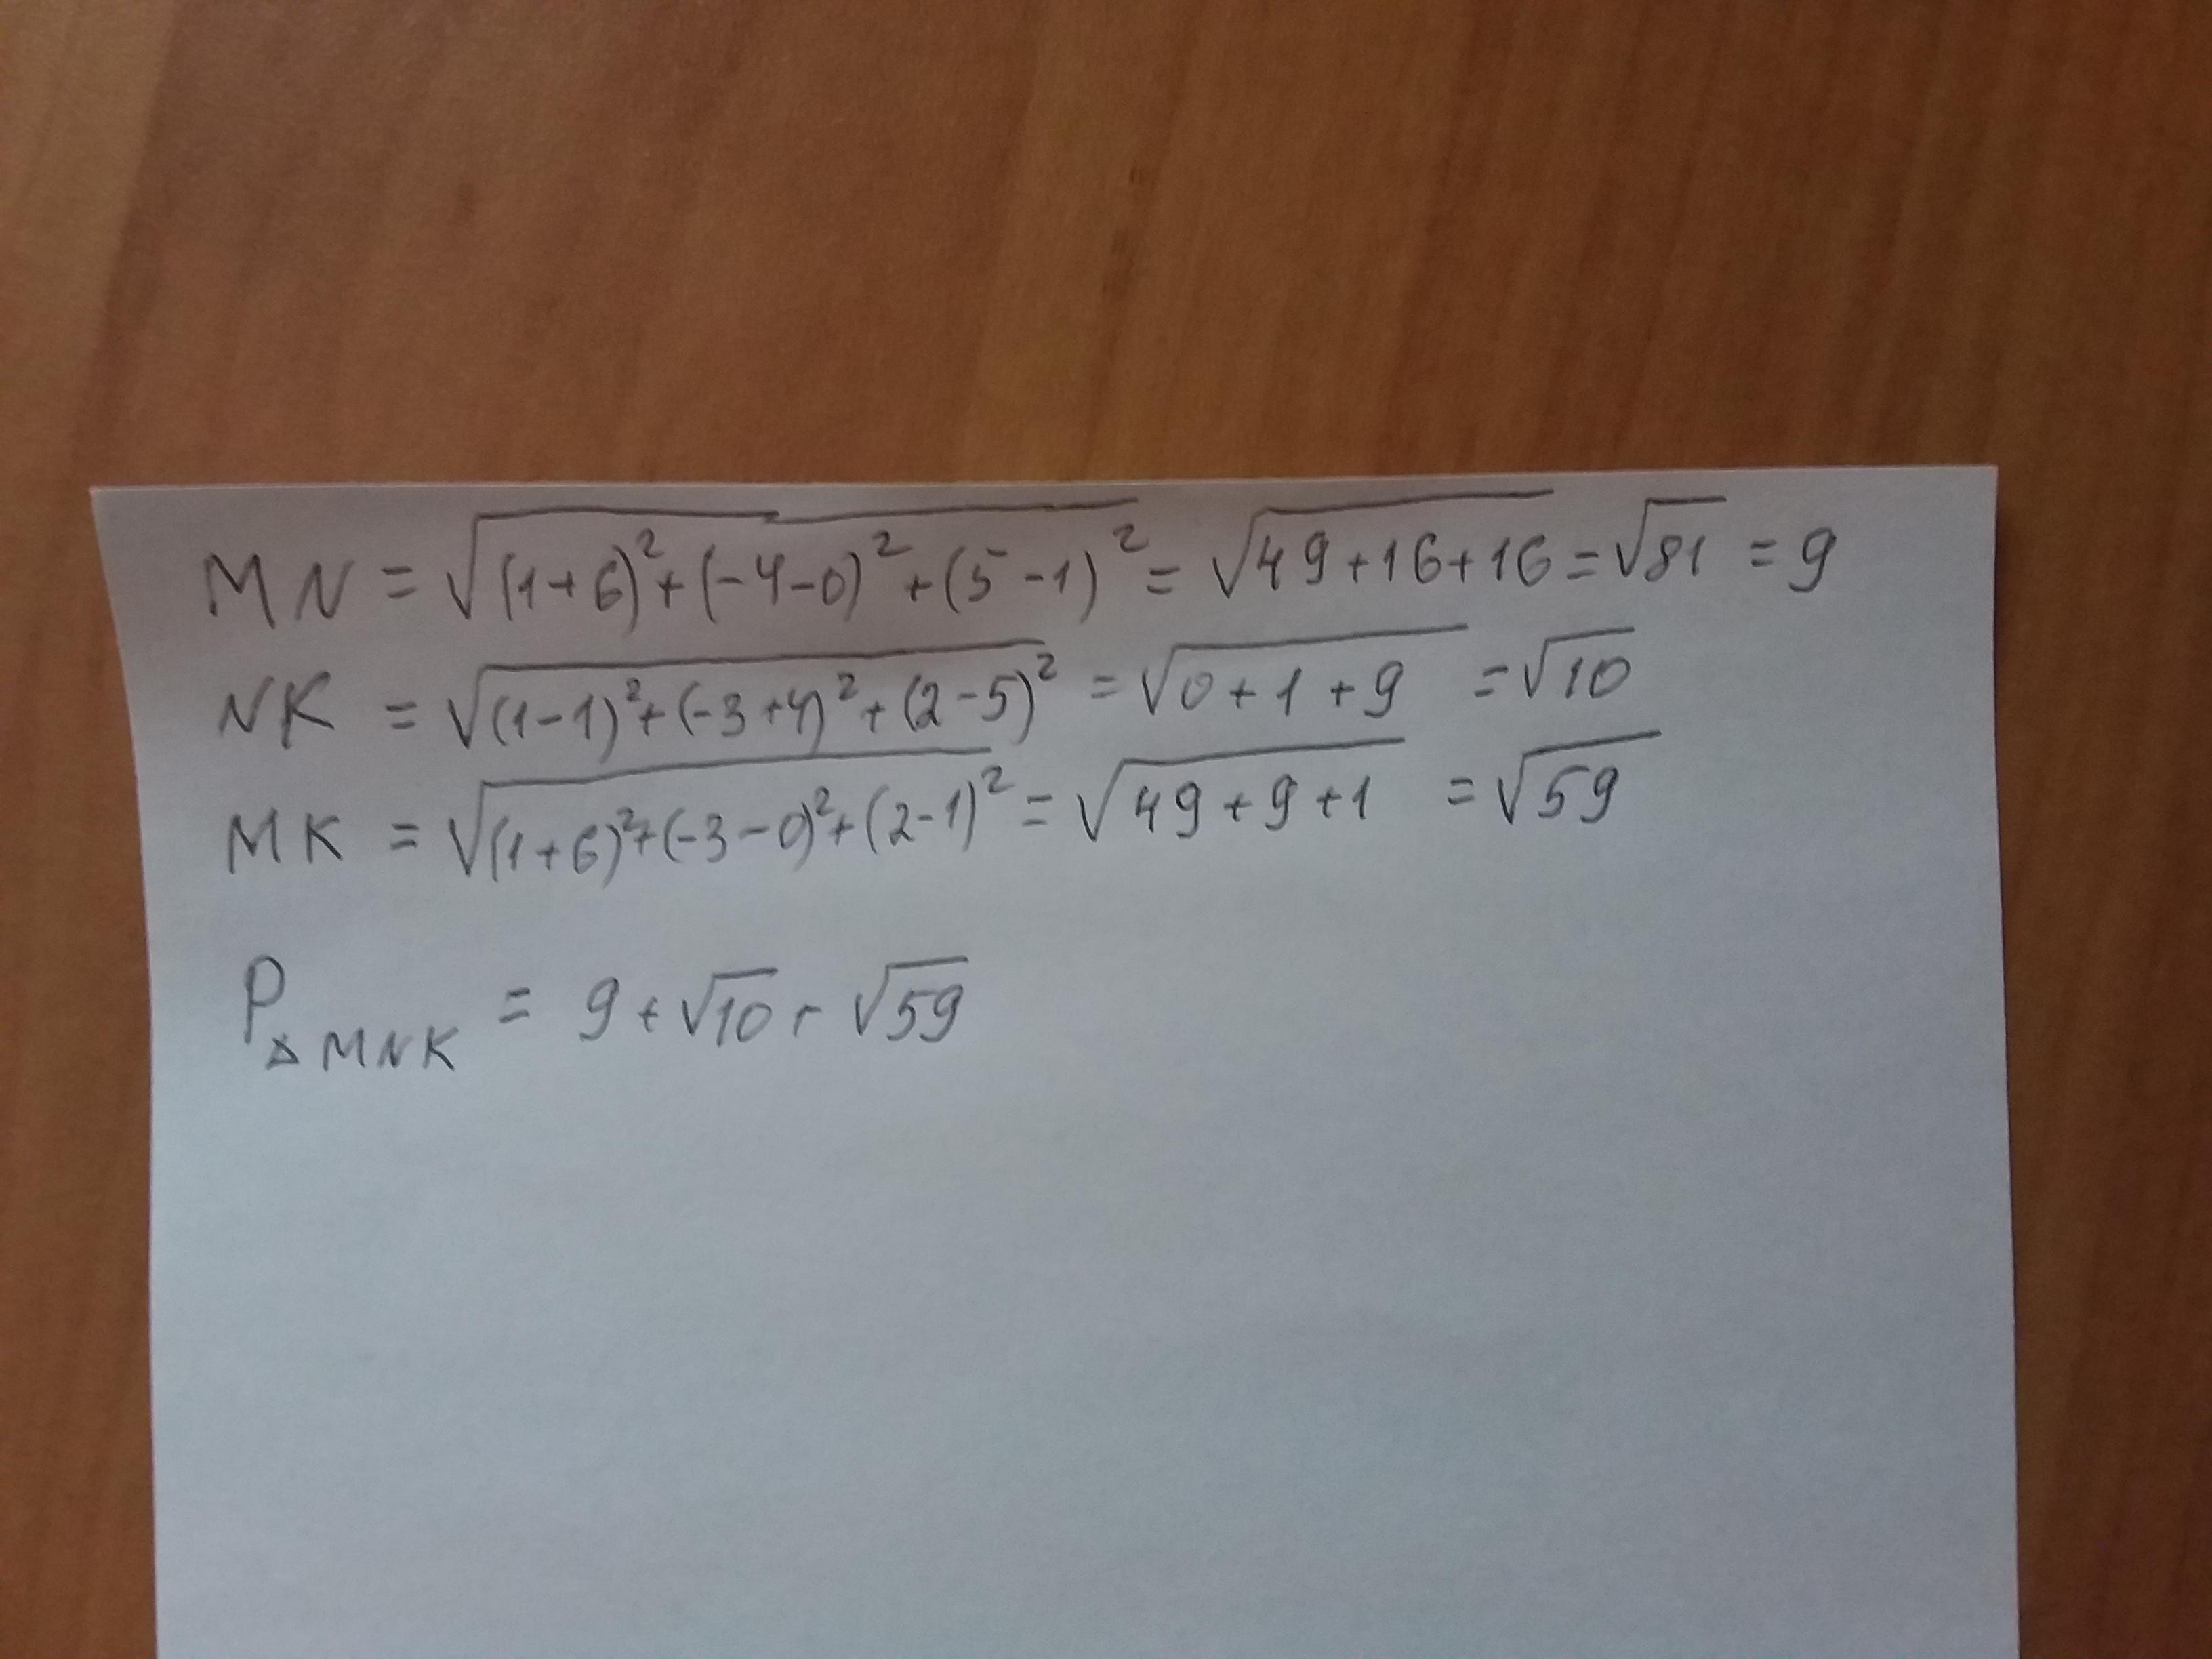 MN = √(1+6)²+(-4-0)²+(5-1)² = √49+16+16 = √81 = 9
NK = √(1-1)²+(-3+4)²+(2-5)² = √0+1+9 = √10
MK = √(1+6)²+(-3-0)²+(2-1)² = √49+9+1 = √59
P△MNK = 9+√10+√59